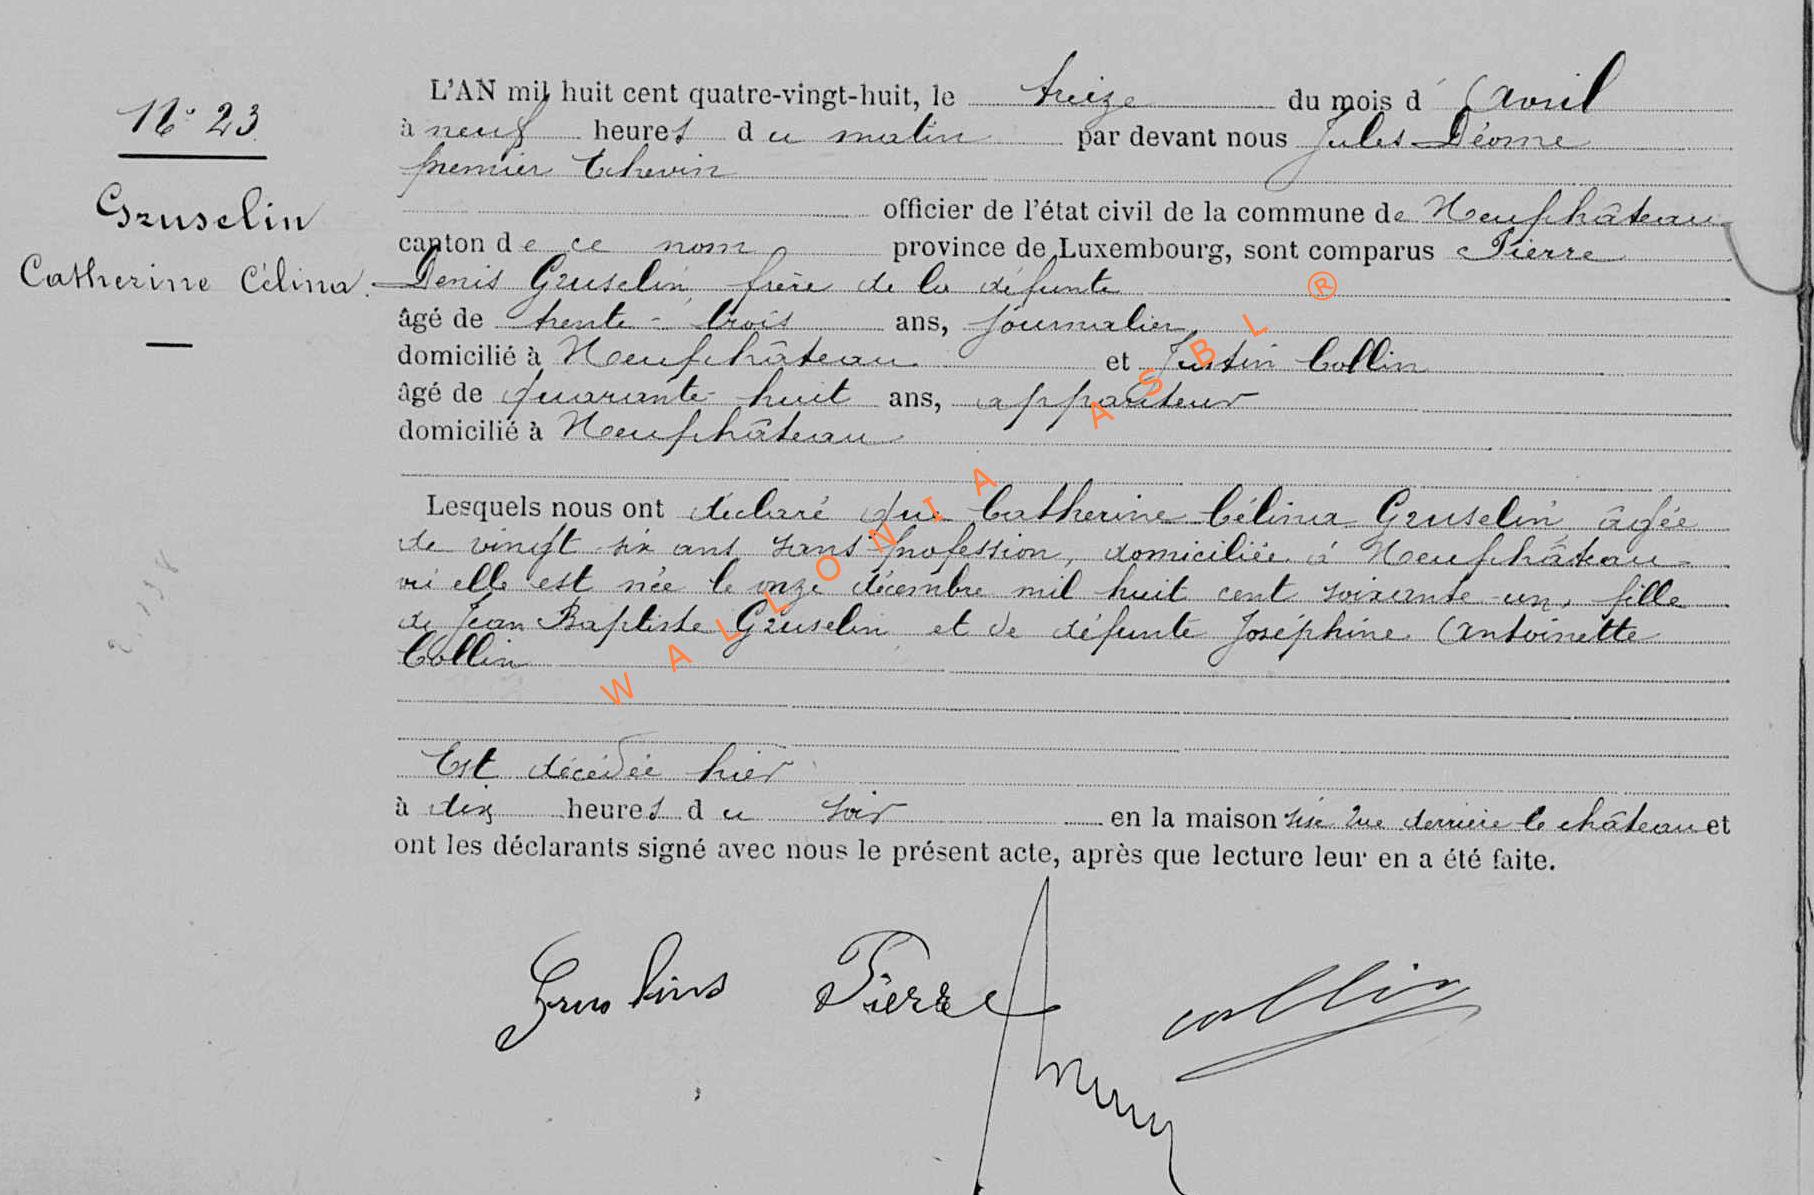 N° 23.
Gruselin
Catherine Célina.
L'AN mil huit cent quatre-vingt-huit, le treize du mois d'Avril
à neuf heures du matin par devant nous Jules Déome
premier Echevin
officier de l'état civil de la commune de Neufchâteau
canton de ce nom province de Luxembourg, sont comparus Pierre
Denis Gruselin, frère de la défunte
âgé de trente-trois ans, journalier,
domicilié à Neufchâteau et Justin Collin
âgé de quarante-huit ans, appariteur
domicilié à Neufchâteau
Lesquels nous ont déclaré que Catherine Célina Gruselin, âgée
de vingt-six ans sans profession, domiciliée à Neufchâteau
où elle est née le onze décembre mil huit cent soixante-un, fille
de Jean Baptiste Gruselin et de défunte Joséphine Antoinette
Collin
Est décédée hier
à dix heures du soir en la maison sise rue derrière le château et
ont les déclarants signé avec nous le présent acte, après que lecture leur en a été faite.
Pierre collin
WALLONIA ASBL ®